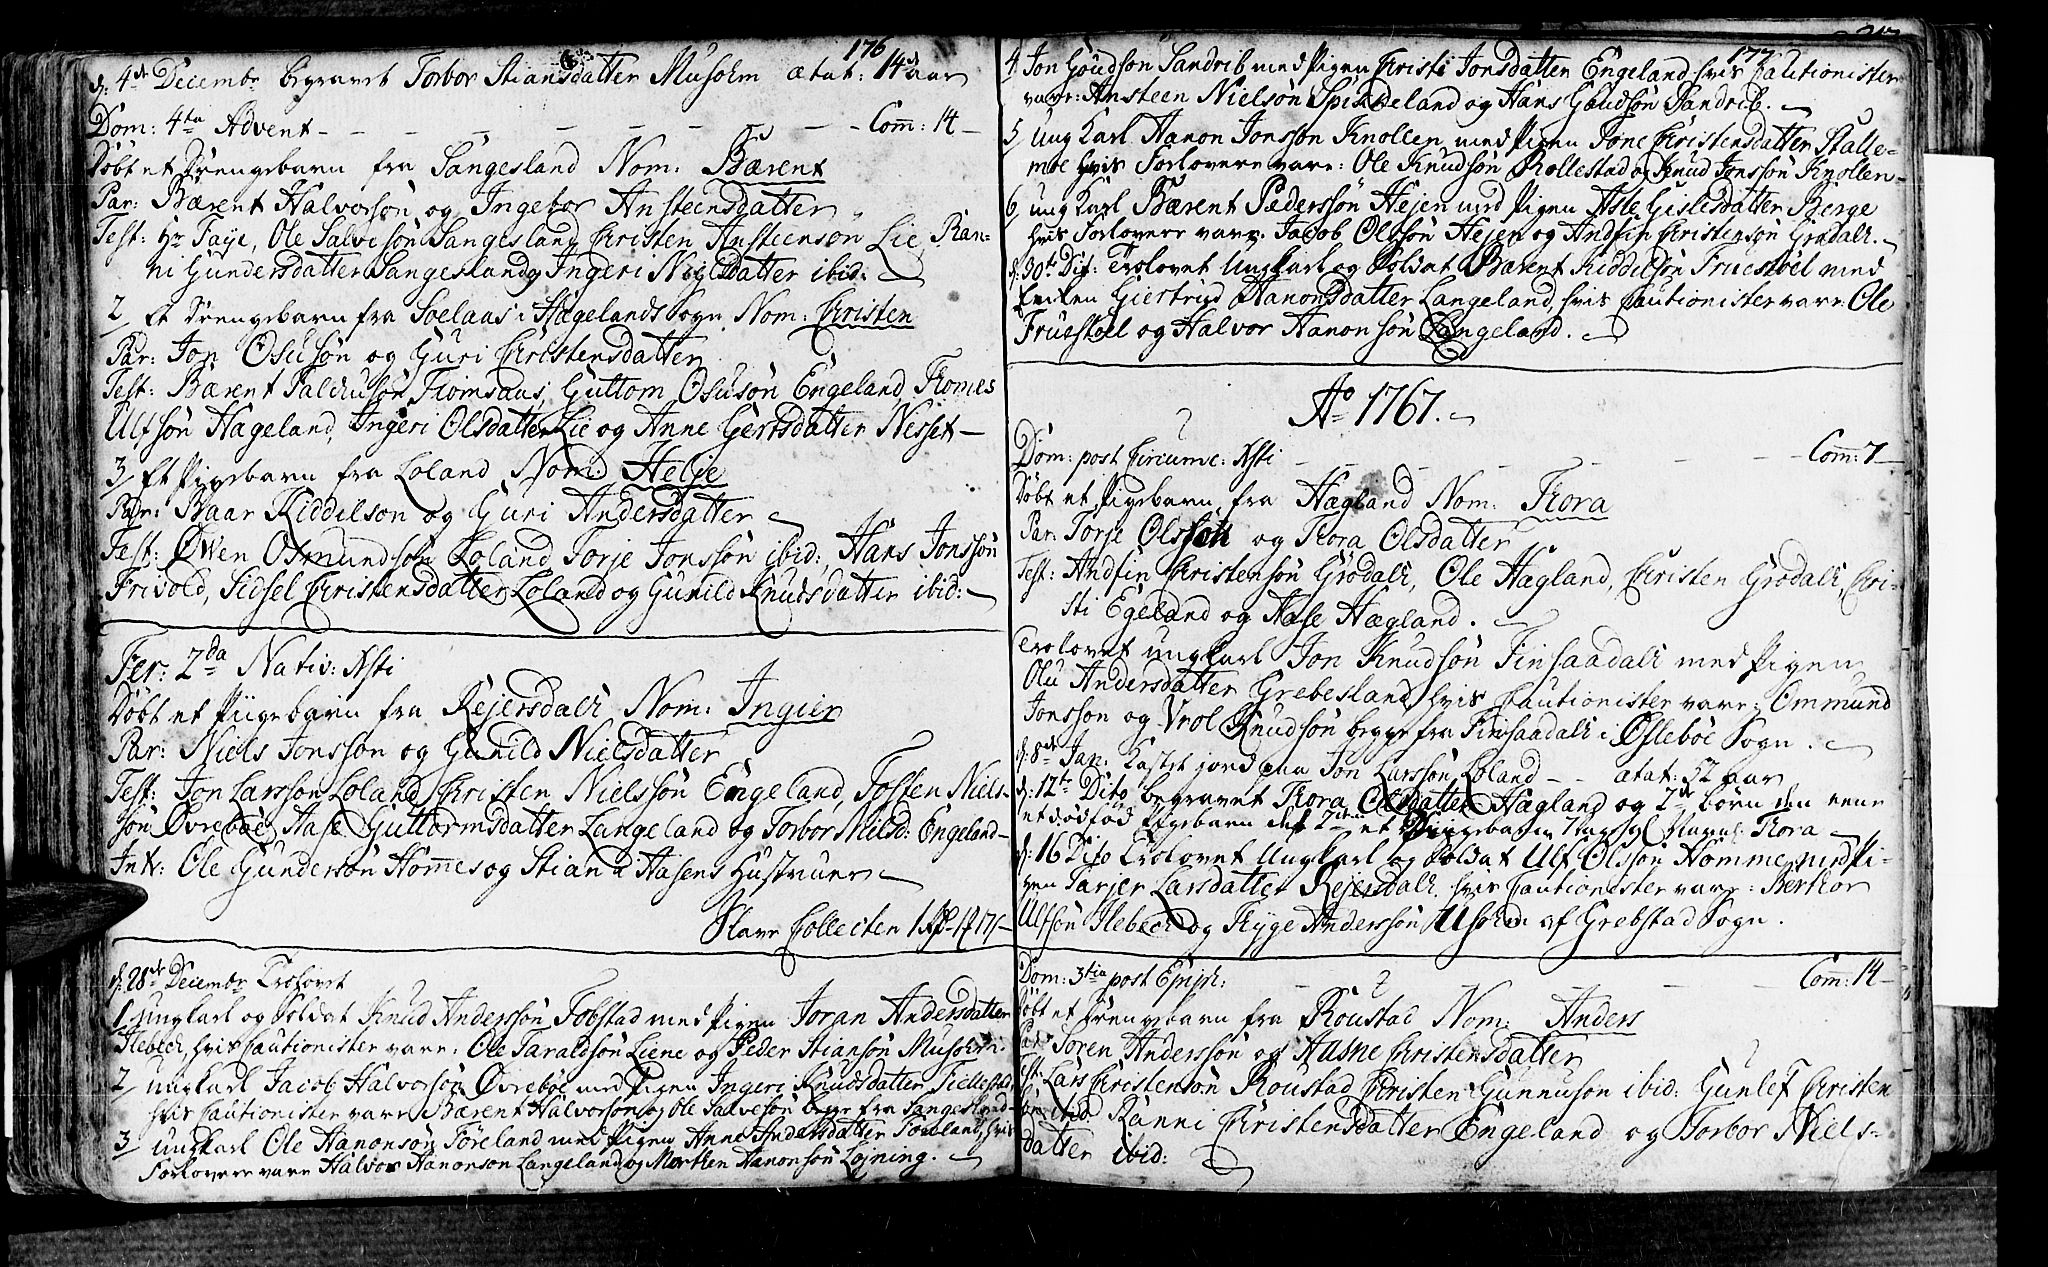 176
d: 4de Decembr begravet Torbor Stiansdatter Musolm ætat: 14 aar
Dom: 4ta Advent - - - - - - - - Com: 14 -
Døbt et Drengebarn fra Sangesland Nom: Bærent
Par: Bærent Halvorsøn og Ingebor Ansteensdatter
Test: Hr Faye, Ole Salvesøn Sangesland, Christen Ansteensøn Lie, Ran-
ni Gundersdatter Sangesland og Ingeri Nielsdatter ibid:
2/ Et Drengebarn fra Soelaas i Hægelands Sogn Nom: Christen
Par: Jon Osusøn og Guri Christensdatter
Test: Bærent Salchusøn Tromsaas, Guttom Osusøn Engeland, Tromes
Ulfsøn Hageland, Ingeri Olsdatter Lie og Anne Gertsdatter Nesset -
3/ Et Pigebarn fra Loland Nom: Helje
Par: Baar Kiddilson og Guri Andersdatter
Test: Owen Osmundsøn Loland, Torje Jonssøn ibid:, Hans Jonssøn
Frivold, Sidsel Christensdatter Loland og Gunild Knudsdatter ibid: -
Fer: 2da Nativ: Xsti
Døbt et Piigebarn fra Rejersdahl Nom: Ingier
Par: Niels Jonsson og Gunild Nielsdatter
Test: Jon Larssøn Loland, Christen Nielssøn Engeland, Tosten Niels-
søn Øvrebøe, Aase Guttormsdatter Langeland og Torbor Nielsd: Engeland -
Intr: Ole Gundersøn Homme og Stian Aasens Hustruer -
Slavr Collecten
d: 28de Decembr Trolovet
1. ungkarl og Soldat Knud Anderssøn Tobstad med Pigen Joran Andersdatter
Ilebech, hvis Cautionister vare: Ole Taraldsøn Liene og Peder Stiansøn Musolm.
2/ ungkarl Jacob Halvorsøn Øvrebøe med Pigen Ingeri Knudsdatter Tiellestad,
hvis Cautionister vare Bærent Halvorsøn og Ole Salvesøn begge fra Sangesland -
3/ ungkarl Ole Hanonsøn Føreland med Pigen Anne Andersdatter Foreland, hvis
Forlovere vare Halvor Aanonson Langeland og Morthen Aanonsøn Løjning.
177
4 Jon Goudsøn Sandrib med Pigen Christi Jonsdatter Engeland hvis Cautionister
vare: Ansteen Nielsøn Spikkeland og Hans Goudsøn Sandrib. -
5/ ung Karl Aanon Jonssøn Knollen med Pigen Tone Christensdatter Stalle-
moe hvis Forlovere vare: Ole Knudsøn Rollestad og Knud Jonssøn Knollen -
6/ ung Karl Bærent Pedersøn Hejen med Pigen Asle Gislesdatter Berge
hvis Forlovere vare: Jacob Olssøn Hejen og Andfin Christensøn Grødalh. -
d: 30te Dit: Trolovet Ungkarl og Soldat Bærent Kiddilsøn Fruestøel med
Enken Giertrud Aanonsdatter Langeland, hvis Cautionister vare: Ole
Fruestøel og Halvor Aanonsøn Langeland. -
Ao 1767.
Dom: post Circumc: Xsti - - - - - Com: 7 -
Døbt et Pigebarn fra Hægland Nom: Thora
Par: Torje Olssøn og Thora Olsdatter
Test: Andfin Christensøn Grødalh, Ole Hægland, Christen Grødalh, Chri-
sti Egeland og Aase Hægland. -
Trolovet ungkarl Jon Knudsøn Finsaadalh med Pigen
Olu Andersdatter Grebesland, hvis Cautionister vare: Ommund
Jonsson og Vrol Knudsøn begge fra Finsaadalh i Øslebøe Sogn. -
d: 8de Jan: Kastet jord paa Jon Larssøn Loland - - ætat: 52 aar
d: 12te Dito begravet Thora Olsdatter Hægland og 2de børn den eene
et dødfød Pigebarn Thora -
d: 16 Dito Trolovet Ungkarl og Soldat Ulf Olsson Homme, med Pi-
gen Tarjer Larsdatter Rejersdalh, hvis Cautionister vare: Berthor
Ulfsøn Ilebech og Thyge Anderssøn af Grebstad Sogn.
Dom: 3tia post Epiph: - - - - Com: 14 -
Døbt et Drengebarn fra Roustad Nom: Anders
Par: Søren Anderssøn og Aasne Christensdatter
Test: Lars Christensøn Roustad, Christen Gunnusøn ibid: Gunlef Christen
søn ibid Ranni Christensdatter Engeland og Torbor Niels-
datter ibid: